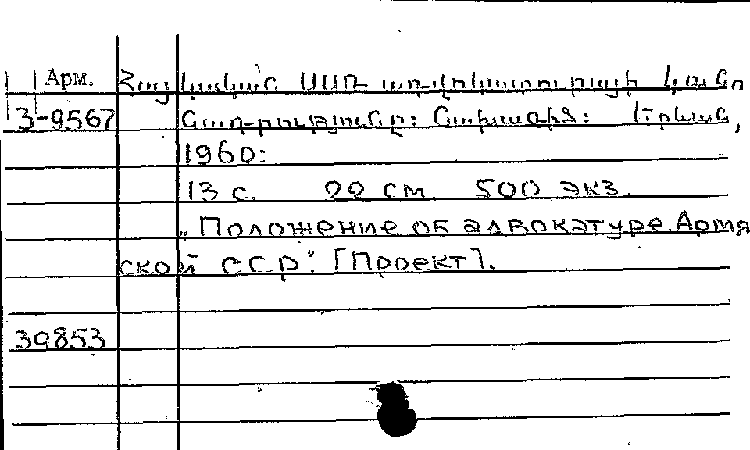 Арм. Հայկական ՍՍՌ ադվոկատուրայի կանո
3-9567 նադրությունը: Նախագիծ: Երևան,
1960:
13 с. 20 см. 500 экз.
„Положение об адвокатуре Армян
ской ССР". [Проект].
39853